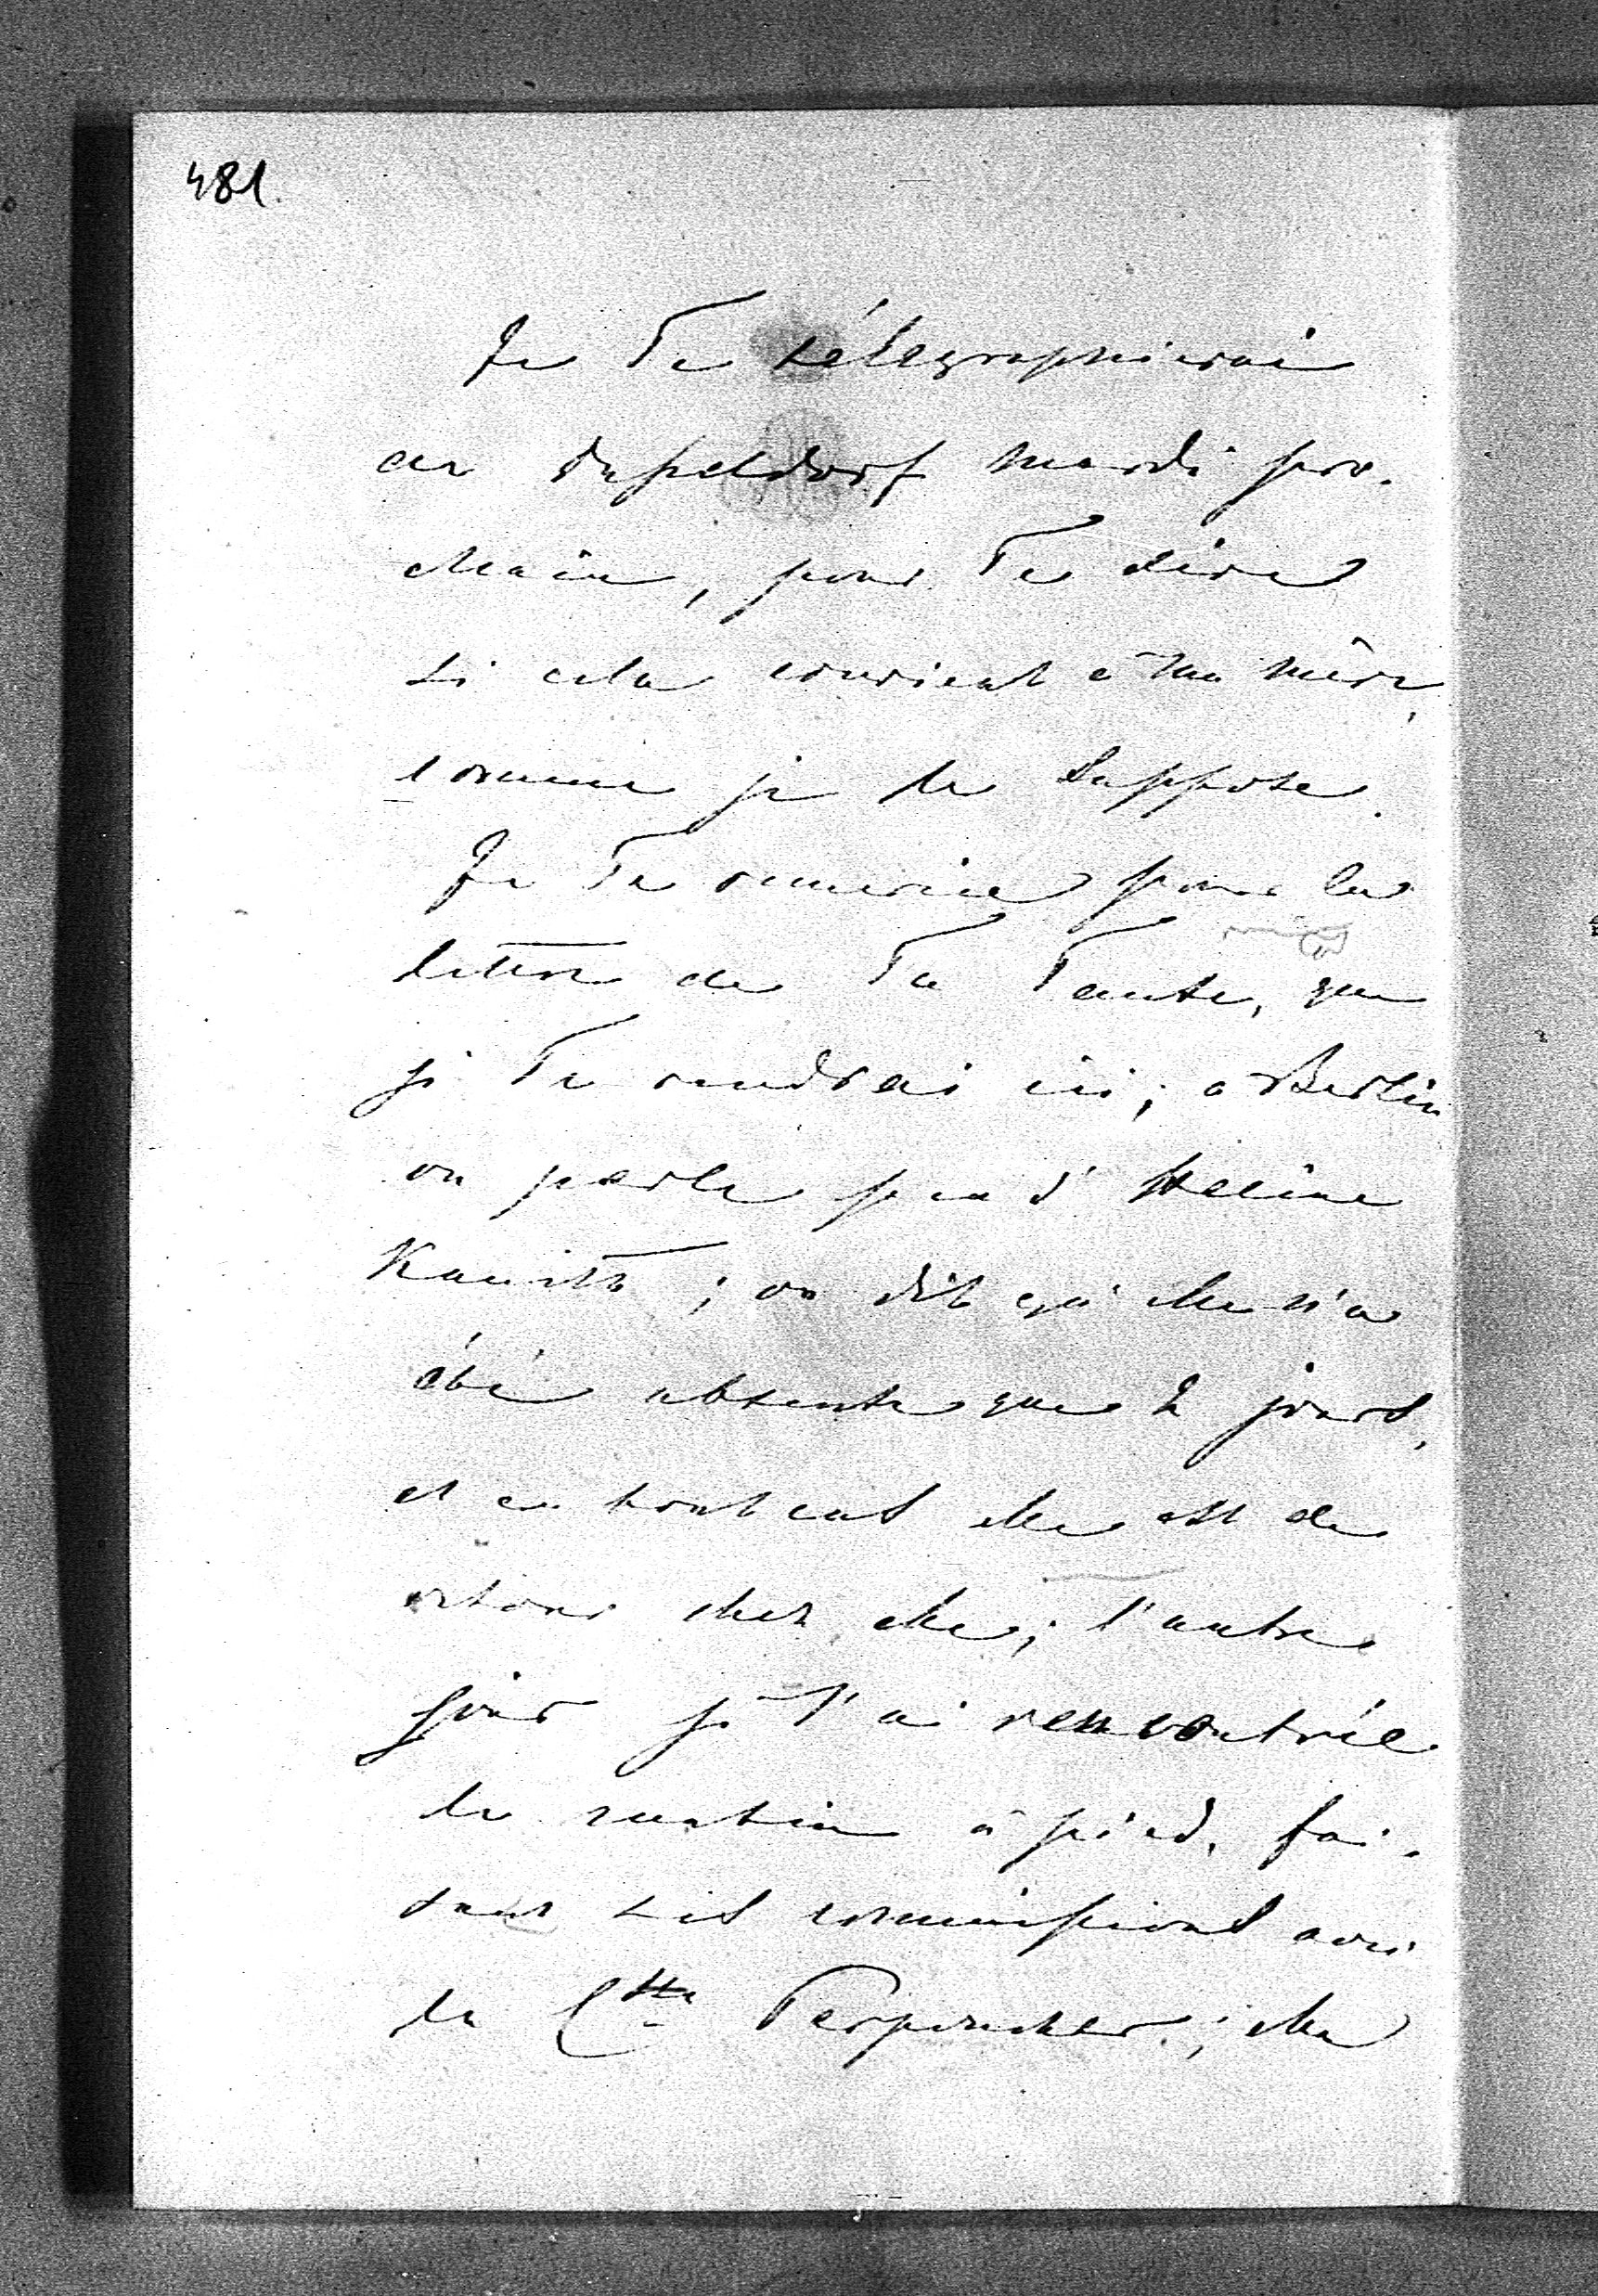 481.
Je Te télegraphierai
a Dusseldorf mardi pro-
chain, pour Te dire
si cela convient à ma mère,
comme je le suppose.
Je Te remercie pour la
lettre de Ta Tante, que
je Te rendrai ici; a Berlin
on parle peu d'Helène
Kanitz; on dit qu'elle n'a
été absente que 2 jours,
et en tout cas elle est de
retour chez elle; l'autre
jour je l'ai rencontrée
le matin à pied, fai-
sant ses commissions avec
la Ctsse Perponcher; elle